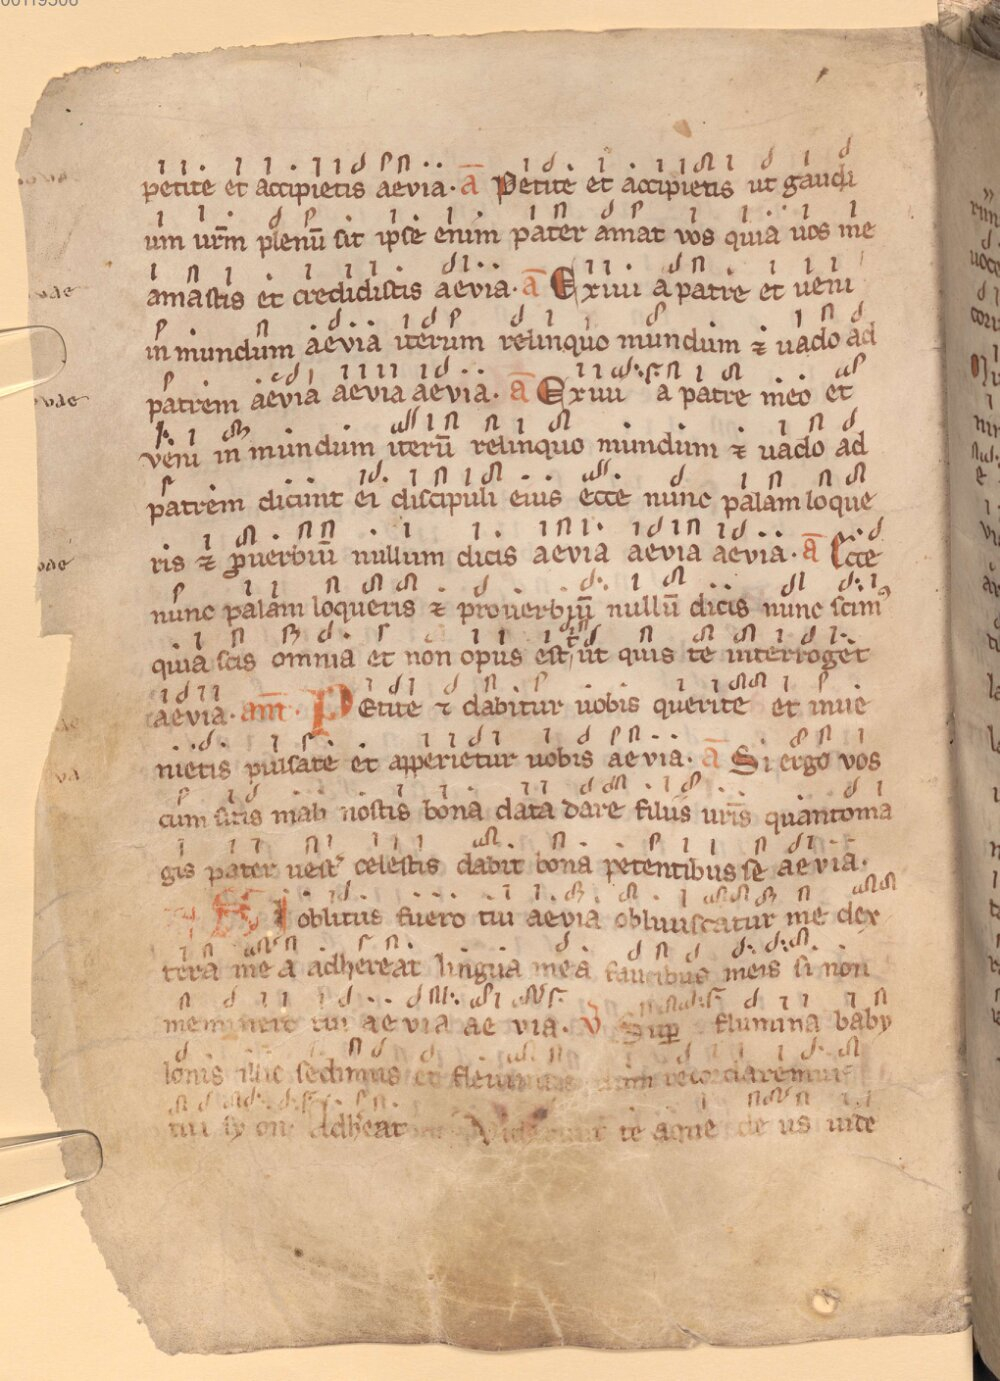 00119506
petite et accipietis aevia. a̅ Petite et accipietis ut gaudi
um ur̅m plenu̅ sit ipse enim pater amat vos quia uos me
amastis et credidistis aevia. a̅ Exiui a patre et ueni
in mundum aevia iterum relinquo mundum ⁊ uado ad
patrem aevia aevia aevia. a̅ Exiui a patre meo et
veni in mundum iteru̅ relinquo mundum ⁊ uado ad
patrem dicunt ei discipuli eius ecce nunc palam loque
ris ⁊ ꝓuerbiu̅ nullum dicis aevia aevia aevia. a̅ Ecce
nunc palam loqueris ⁊ prouerbiu̅ nullu̅ dicis nunc scimꝰ
quia scis omnia et non opus est ut quis te interroget
aevia. am̅. PEtite ⁊ dabitur uobis querite et inue
nietis pulsate et apperietur uobis aevia. a̅ Si ergo vos
cum sitis mali nostis bona data dare filiis ur̅is quantoma
gis pater uest celestis dabit bona petentibus se aevia.
Si oblitus fuero tui aevia obliuiscatur me dex
tera mea adhereat lingua mea faucibus meis si non
meminero tui aevia ae via. V Suꝑ flumina baby
lonis illic sedimus et fleuimus dum recordaremur
tui sy on Adheat te aque de us uide
vae
vae
vae